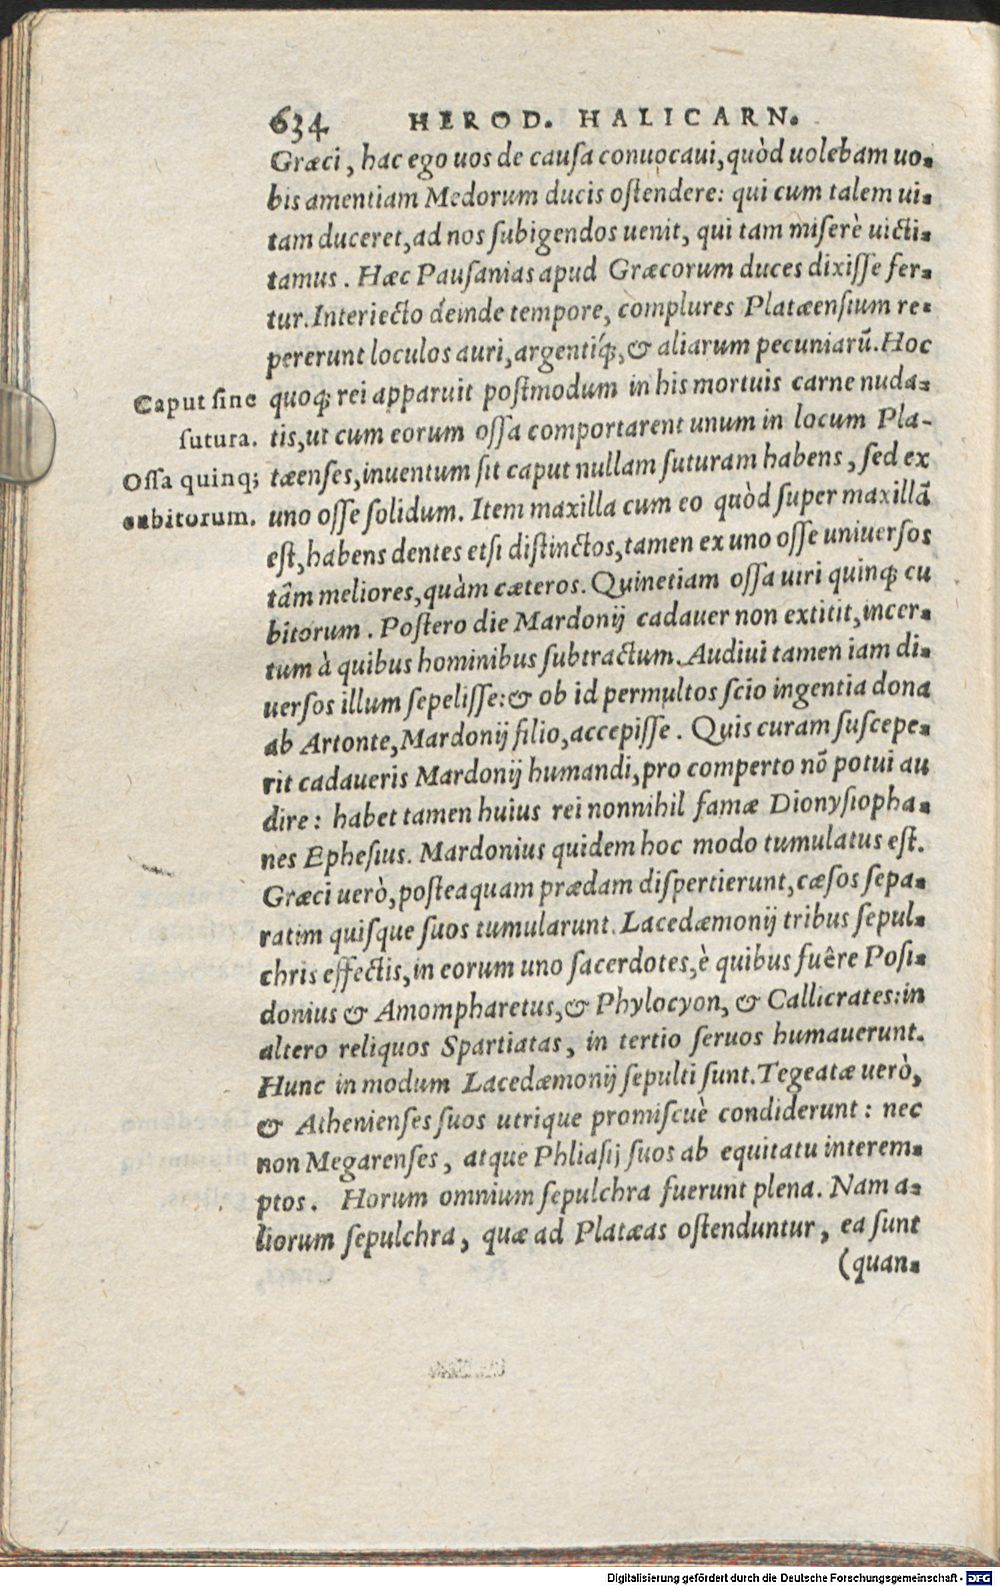 634 HEROD. HALICARN.
Græci, hac ego uos de cauſa conuocaui, quòd uolebam uo-
bis amentiam Medorum ducis oſtendere: qui cum talem ui-
tam duceret, ad nos ſubigendos uenit, qui tam miſerè uicti-
tamus. Hæc Pauſanias apud Græcorum duces dixiſſe fer-
tur. Interiecto deinde tempore, complures Platæenſium re-
pererunt loculos auri, argentíq;, & aliarum pecuniarũ. Hoc
Caput ſine
quoq; rei apparuit poſtmodum in his mortuis carne nuda-
ſutura.
tis, ut cum eorum oſſa comportarent unum in locum Pla-
Oſſa quinq;
tæenſes, inuentum ſit caput nullam ſuturam habens, ſed ex
cubitorum.
uno oſſe ſolidum. Item maxilla cum eo quòd ſuper maxillã
eſt, habens dentes etſi diſtinctos, tamen ex uno oſſe uniuerſos
tãm meliores, quàm cæteros. Quinetiam oſſa uiri quinq; cu
bitorum. Poſtero die Mardonij cadauer non extitit, incer-
tum à quibus hominibus ſubtractum. Audiui tamen iam di-
uerſos illum ſepeliſſe: & ob id permultos ſcio ingentia dona
ab Artonte, Mardonij filio, accepiſſe. Quis curam ſuſcepe-
rit cadaueris Mardonij humandi, pro comperto nõ potui au
dire: habet tamen huius rei nonnihil famæ Dionyſiopha-
nes Epheſius. Mardonius quidem hoc modo tumulatus eſt.
Græci uerò, poſteaquam prædam diſpertierunt, cæſos ſepa-
ratim quiſque ſuos tumularunt. Lacedæmonij tribus ſepul-
chris effectis, in eorum uno ſacerdotes, è quibus fuêre Poſi-
donius & Amompharetus, & Phylocyon, & Callicrates: in
altero reliquos Spartiatas, in tertio ſeruos humauerunt.
Hunc in modum Lacedæmonij ſepulti ſunt. Tegeatæ uerò,
& Athenienſes ſuos utrique promiſcuè condiderunt: nec
non Megarenſes, atque Phliaſij ſuos ab equitatu interem-
ptos. Horum omnium ſepulchra fuerunt plena. Nam a-
liorum ſepulchra, quæ ad Platæas oſtenduntur, ea ſunt
(quan-
Digitalisierung gefördert durch die Deutsche Forschungsgemeinschaft - DFG